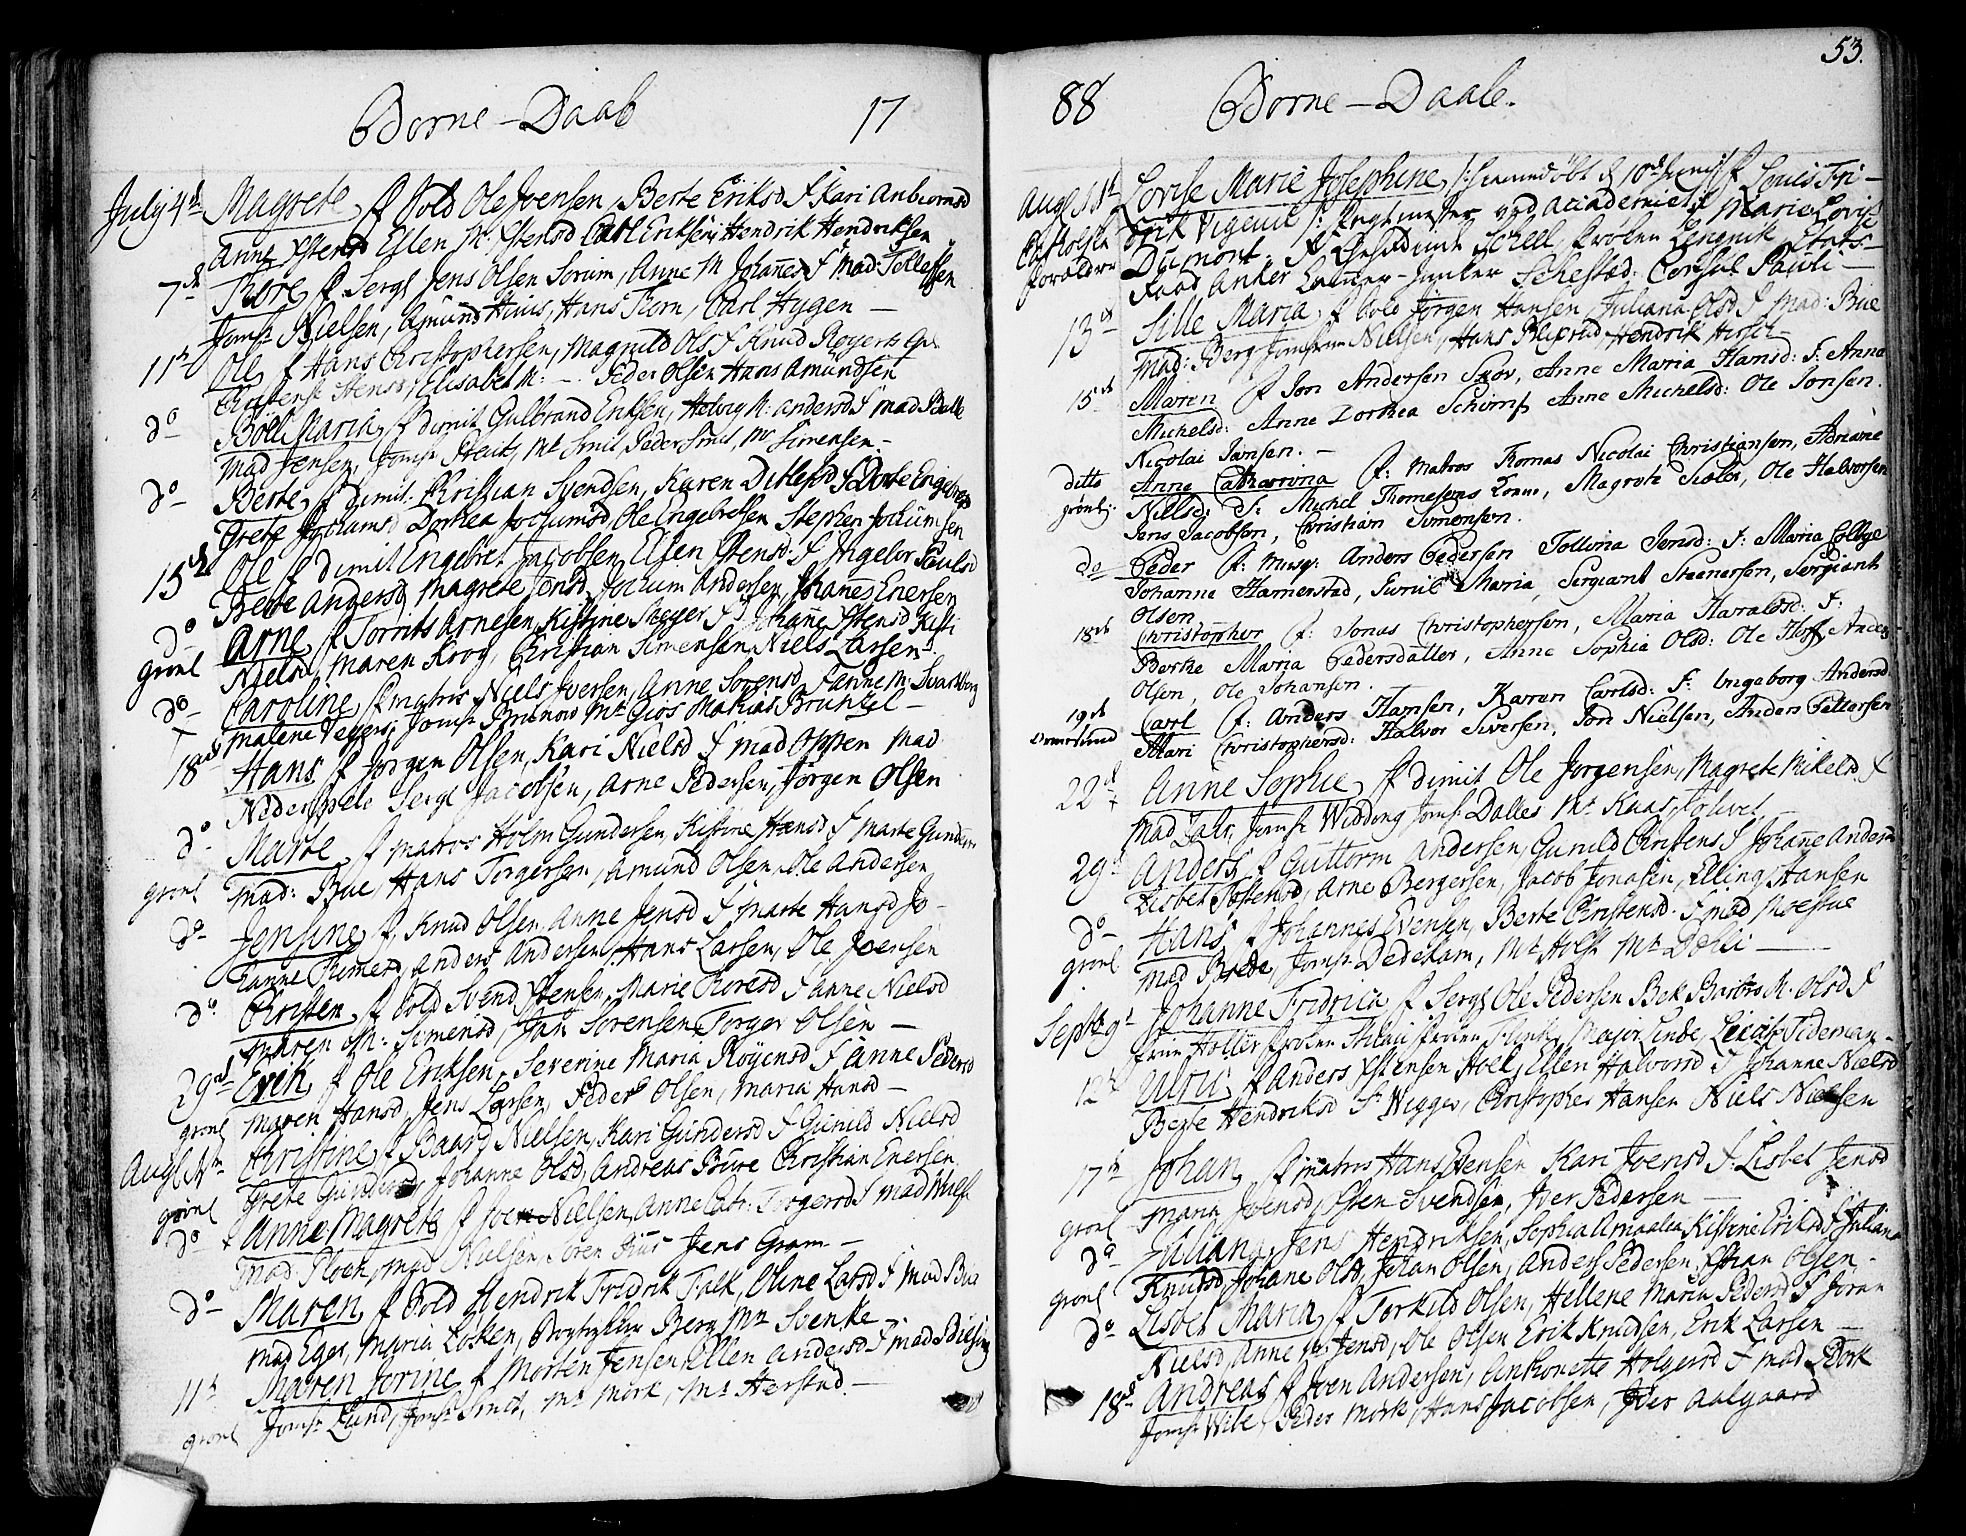 Börne-Daab 17
July 4d Magrete f Sold Ole Joensen, Berte Eriksd F Kari Anbiornsd
Anne Ystensd Ellen M. Ystensd Carl Eriksen, Hendrik Hendriksen
7d Thore f Sergt Jens Olsen Sorum, Anne M Johanesd F Mad: Tellefsen
Jomfr Nielsen, Amund Huus, Hans Thorn, Carl Hygen —
11th Ole f Hans Christophersen, Magnild Olsd F Knud Røyers
Christense Stensd, Elisabet M: —. Peder Olsen Hans Amundsen
do Böell Maria f dimit Gulbrand Eriksen, Helvig M: Andersd F Mad Belle
Mad Jensen, Jomfr Steitz, Mr Smit Peder Smit, Mr Simensen —
do Berte f dimit. Christian Svendsen, Karen Ditlefsd F Dorte Engebretsd
Grete Jochumsd Dorthea Jochumsd Ole Engebretsen Stephen Jochumsen
15de Ole f dimit Engebret Jacobsen, Ellen Ystensd: F Ingebor Paulsd
Berte Andersd Magrete Jonsd Jochum Andersen, Johannes Enersen
do Arne f Torrits Arnesen, Kistine Meyer F Johane Ystensd Kisti
grönl Nielsd, Maren Krog, Christian Simensen Niels Larsen
do Caroline f matros Niels Iversen, Anne Sorensd F Anne M. Svartberg
Malene Veyers, Jomfr Brunow Mr Gios Mathias Bruntzel —
18de Hans f Jorgen Olsen, Kari Nielsd F Mad Oppen Mad
Nidersteele Sergt Jacobsen, Arne Pedersen, Jörgen Olsen
do Marte f matros Holm Gundersen, Kistine Hansd F Marte Gundersen
grönl Mad: Bue, Hans Torgersen, Amund Olsen, Ole Andersen
do Jensine f. Knud Olsen, Anne Jensd F Marte Hansd Jo-
hanne Thomesd, Anders Andersen, Hans Larsen, Ole Joensen
do Christen f Sold Svend Ystensen, Marie Thoresd F Anne Nielsd
Maren M. Simensd, Jan Sörensen, Torger Olsen —
29d Erik f Ole Eriksen, Severine Maria Röyensd F Anne Pedersd
grönl Maren Hansd, Jens Larsen, Peder Olsen, Maria Hansd —
Augt 1st Christine f Baard Nielsen, Kari Gundersd F Gunild Nielsd
grönl Grete Gundersd, Johanne Olsd, Andreas Bure Christian Enersen
do Anne Magrete f Joen Nielsen, Anne Catr: Torgersd F Mad
Mad Ploen, Mad Nielsen Soren Jens Gram —
do Maren f Sold Hendrik Fridrik Falk, Oline Larsd F Mad Bue
Mad Eger, Maria Losken, Berg Mr Svenke —
11t Maren Jorine f Morten Jensen Ellen Andersd F Mad
grönl Jomfr Lund, Jomfr Smit, Mr Mörk, Mr Herstad. —
53.
88 Börne-Daab.
Augt 11t Lovise Marie Josephine /: hiemdöbt d 10d Junij :/ f Louis Fri-
drik Vigeut /: Academiet :/ Marie Lovise
forældre Dumont. F Geheimeraadinde Scheel, Fröken Lingnik, Etats-
Raad Anker Cammer-Junker Schestad: Consul Pauli —
13de Sille Maria f Sold Jörgen Hansen, Juliana Olsd F Mad: Bue
Mad: Berg Jomfrue Nielsen, Hans Blixrud Hendrik Hersle —
15de Maren f Jon Andersen Skov, Anne Maria Hansd: F: Anne
Michelsd: Anne Dorthea Schimpf Anne Michelsd: Ole Jonsen.
Nicolai Jansen. —
ditto Anne Catharrina f: Matros Thomas Nicolai Christiansen, Adriane
grönl: Nielsd: F: Michel Thomesens Kone, Magrete Siæler, Ole Halvorsen
Jens Jacobsen, Christian Simonsen.
do Peder f: Musq: Anders Pedersen Tollina Jonsd: F: Maria Colbye
Johanne Hamerstad, Gunil Maria, Sergiant Steenersen, Sergiant
Olsen.
18de Christopher f: Jonas Christophersen, Maria Haralsd: F:
Berthe Maria Pedersdatter, Anne Sophia Olsd: Ole Anders
Olsen, Ole Johansen.
19de Carl f: Anders Hansen, Karen Carlsd: F: Ingeborg Andersd
Ormsund Mari Christophersd: Halvor Siversen, Jon Nielsen, Anders Pettersen
22d Anne Sophie f dimit Ole Jorgensen, Magrete Mikelsd F
Mad Lahr, Jomfr Widding Jomfr Dalles Mr Kaas,
29d Anders f Guttorm Andersen, Gunild Christens F Johane Andersd
Lisbet Tostensd, Arne Bergersen, Jacob Jonasen, Elling Hansen
do Hans f Johannes Evensen, Berte Christensd. F Mad Moestue
grönl Mad Brede, Jomfr Dedekam, Mr Holst Mr Delli —
Septb 9t Johanne Fridrica f Sergt Ole Pedersen Bek Barbro M. Olsd F
Frue Holter Fröken Stilau Fröken Major Linde, Lieut Tideman —
12t Ulric f Anders Ystensen Hoel, Ellen Halvorsd F Johanne Nielsd
Berte Hendriksd Sr Wigger, Christopher Hansen Niels Nielsen
17t Johan f matros Hans Jensen Kari Joensd F. Lisbet Jensd
grönl Maria Joensd, Ysten Svendsen, Iver Pedersen —
do Juliana, Jens Hendriksen, Sophia Amaalia Kistine Eriksd F Juliana
grönl Knudsd Johane Olsd, Johan Olsen, Anders Pedersen, Christian Olsen —
do Lisbet Maria f Torkild Olsen, Hellene Maria Pedersd F Joran
Nielsd, Anne M. Jensd, Ole Olsen, Erik Knudsen, Erik Larsen —
18d Andreas f Iven Andersen, Anthonette Holgersd F Mad Stork
Jomfr Wibe, Peder Mörk, Hans Jacobsen, Iver Aalgaard